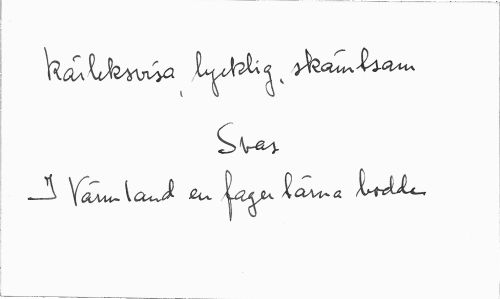 Kärleksvisa, lycklig, skämtsam
Svar
I Värmland en fager tärna bodde